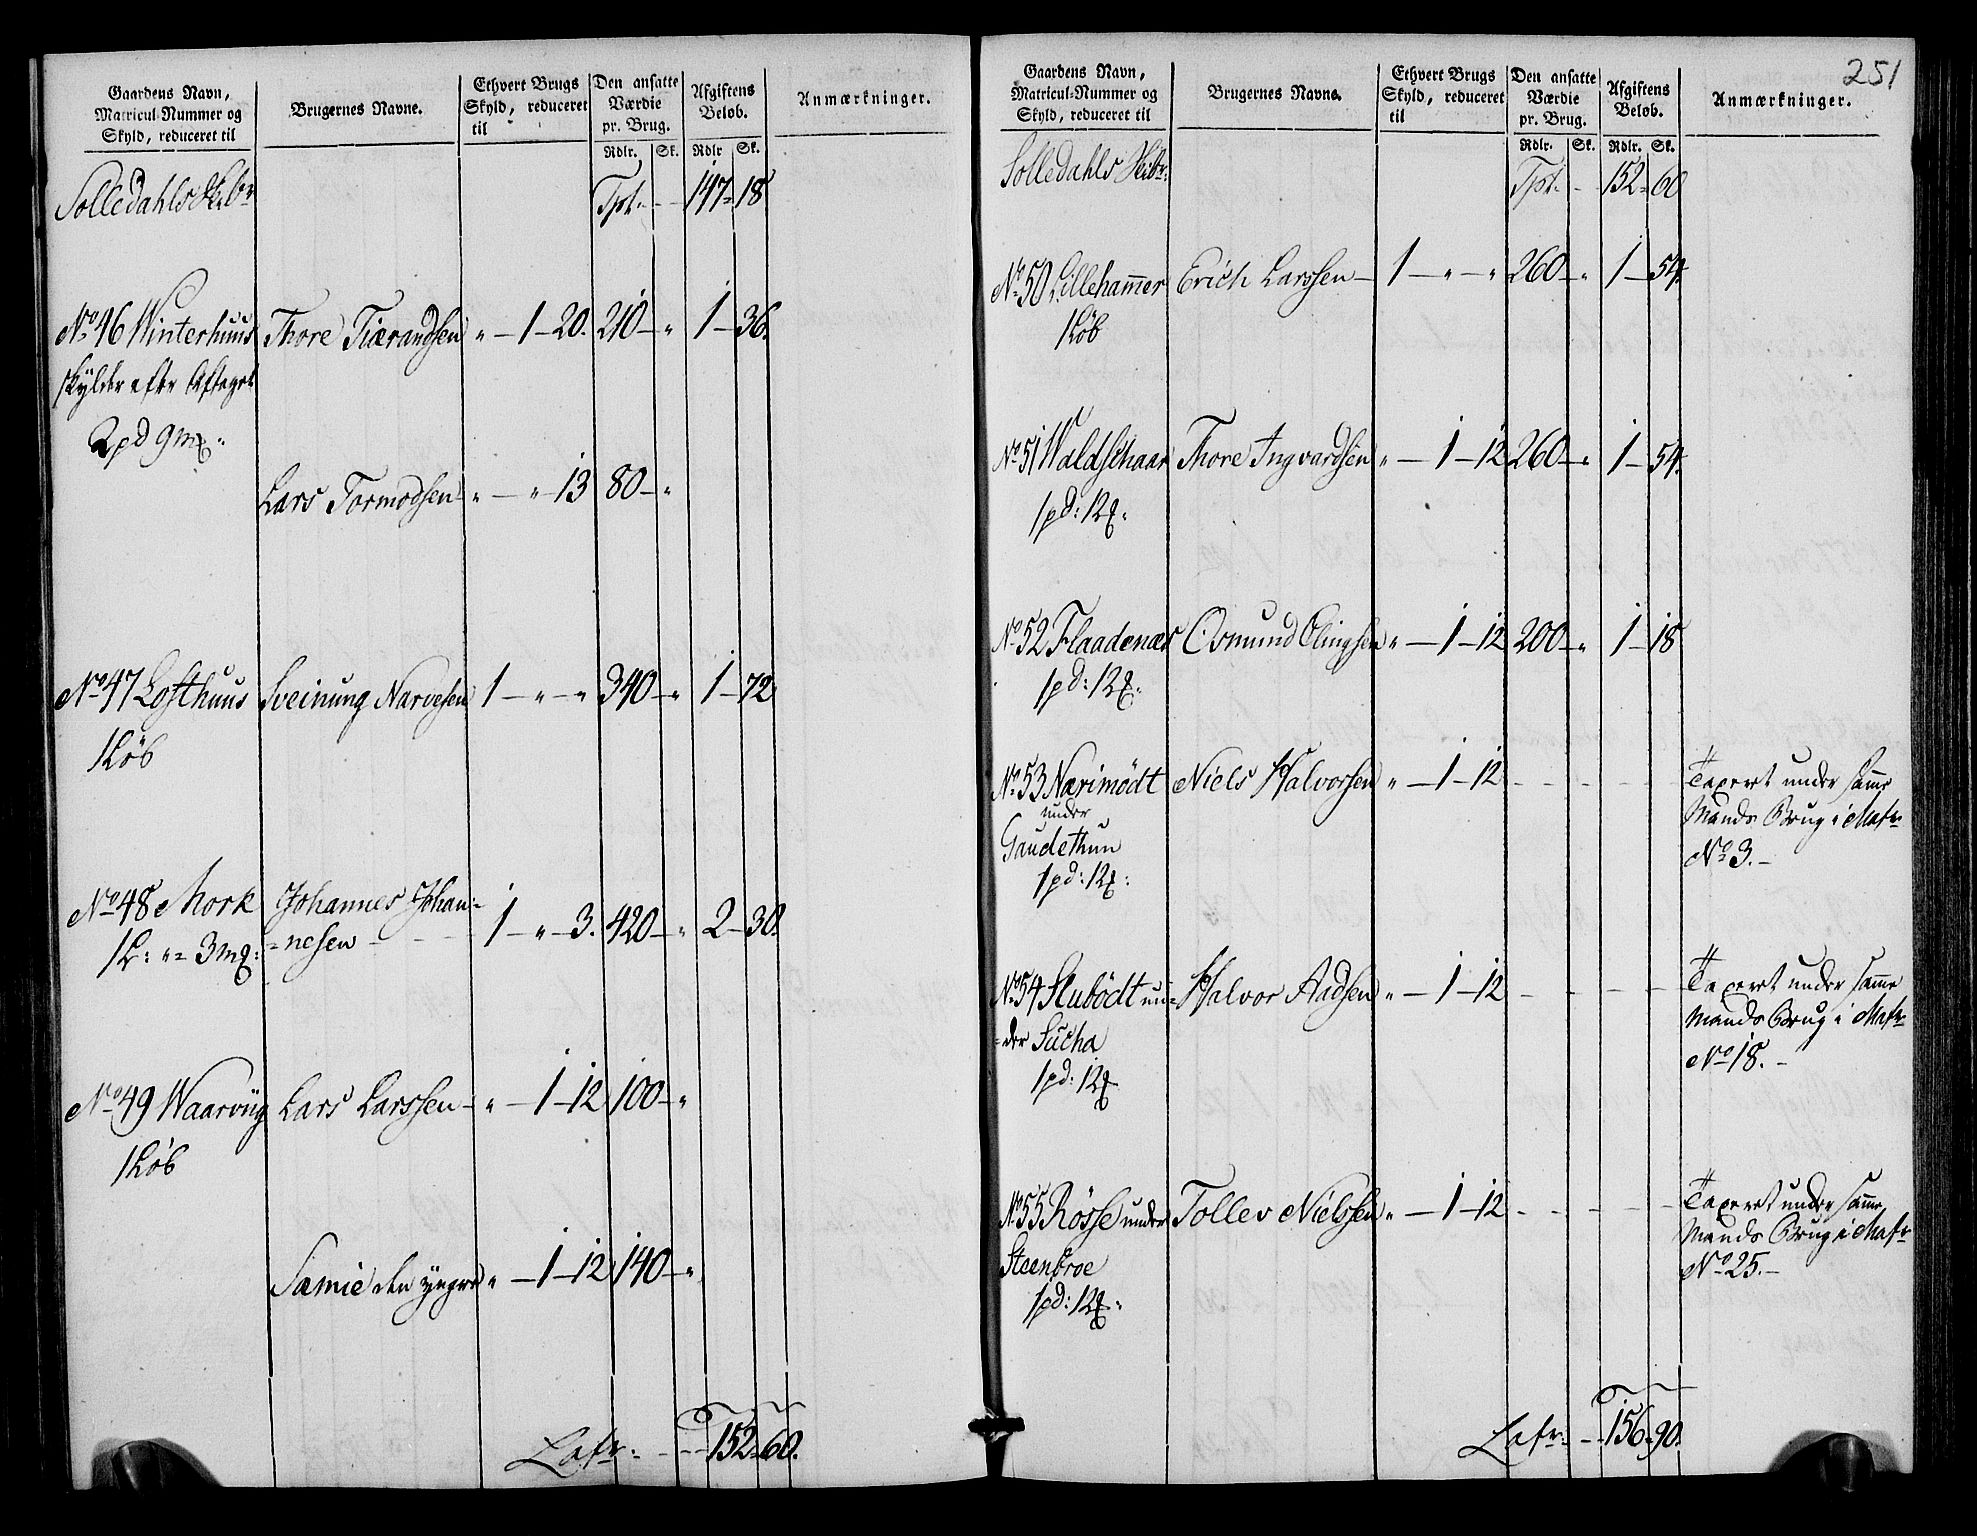 Gaardens Navn, Matricul-Nummer og Skyld, reduceret til | Brugernes Navne. | Ethvert Brugs Skyld, reduceret til | Den ansatte Værdie pr. Brug. Rdlr. Sk. | Afgiftens Beløb. Rdlr Sk. | Anmærkninger.
Solledahls Skibr | Tpt. - - 147 - 18
No 46 Winterhuus | Thore Tiærandsen | " - 1 - 20. | 210 - " | 1 - 36.
skylder efter Aftaget
2 pd 9 mk.
Lars Tormodsen - | " - " - 13 | 80 - "
No 47 Lofthuus | Sveinung Narvesen | 1 - " - " | 340 - " | 1 - 72.
1 Løb
No 48 Mork | Johannes Johan= | 1 - " - 3. | 420 - " | 2 - 30.
1 L: " = 3 mk: | =nesen
No 49 Waarviig | Lars Larssen - | " - 1 - 12 | 100 - "
1 Løb
Samme den yngre | " - 1 - 12 | 140 - "
Lafr: - - 152 - 60.
251
Gaardens Navn, Matricul-Nummer og Skyld, reduceret til | Brugernes Navne. | Ethvert Brugs Skyld, reduceret til | Den ansatte Værdie pr. Brug. Rdlr. Sk. | Afgiftens Beløb. Rdlr. Sk. | Anmærkninger.
Solledahls Skibr: | Tpt. - 152 - 60
No 50 Lillehammer | Erich Larssen - | 1 - " - " | 260 - " | 1 - 54.
1 Løb
No 51 Waldschaar | Thore Ingvardsen | " - 1 - 12 | 260 - " | 1 - 54.
1 pd: 12 mk.
No 52 Flaadenæs | Osmund Elingsen | " - 1 - 12 | 200 - " | 1 - 18
1 pd: 12 mk.
No 53 Nærimödt | Niels Halvorsen | " - 1 - 12 | - - - - | Taxeret under samme
under | Mands Brug i Matr
Gaudethun | No 3. -
1 pd: 12 mk:
No 54 Slubödt un= | Halvor Aadsen | " - 1 - 12 | - - - - | Taxeret under samme
=der Sucha | Mands Brug i Matr
1 pd: 12 mk | No 18. -
No 55 Rösse under | Tollev Nielssen | " - 1 - 12 | - - - - | Taxeret under samme
Steenbroe | Mands Brug i Matr
1 pd: 12 mk. | No 25. -
Lafr: - - 156 - 90.